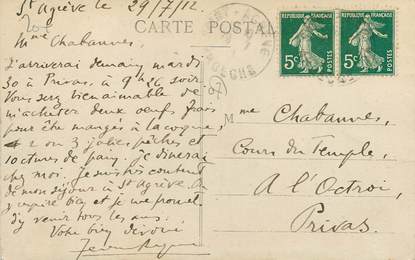 St Agrève le 29/7/12.
CARTE POSTALE
Mme Chabannes
J'arriverai demain mardi
30 à Privas, à 7h26 soir.
Vous serez bien aimable de
m'acheter deux oeufs frais
pour être mangés à la coque,
2 ou 3 jolies pêches et
10 ctmes de pain. Je dînerai
chez moi. Je suis très content
de mon séjour à St Agrève. On
y respire bien et je me promets
d'y venir tous les ans.
Votre bien dévoué
REPUBLIQUE FRANÇAISE
5c POSTES
REPUBLIQUE FRANÇAISE
5c POSTES
ARDECHE
Mme Chabannes,
Cours du Temple,
A l'Octroi,
Privas.